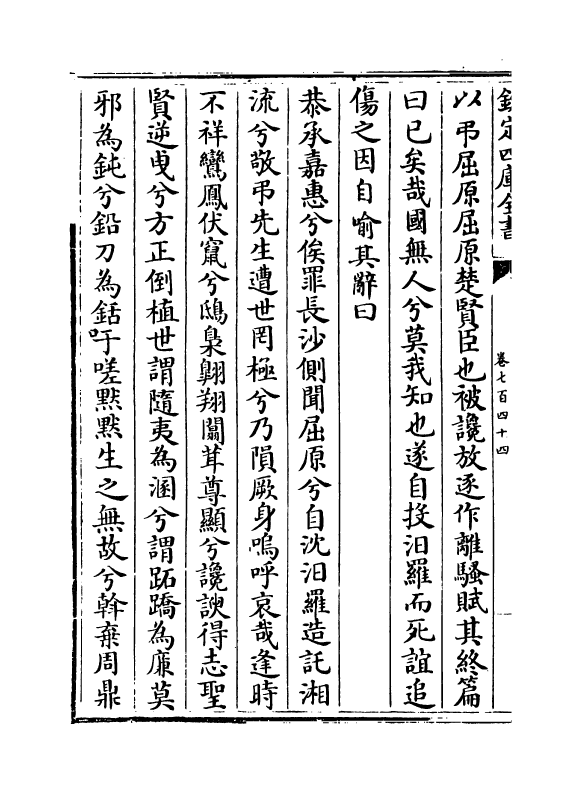 欽定四庫全書
卷七百四十四
以弔屈原屈原楚賢臣也被讒放逐作離騷賦其終篇
曰已矣哉國無人兮莫我知也遂自投汨羅而死誼追
傷之因自喻其辭曰
恭承嘉惠兮俟罪長沙側聞屈原兮自沈汨羅造託湘
流兮敬弔先生遭世罔極兮乃隕厥身嗚呼哀哉逢時
不祥鸞鳳伏竄兮鴟梟翺翔闒茸尊顯兮讒諛得志聖
賢逆曵兮方正倒植世謂隨夷為溷兮謂跖蹻為廉莫
邪為鈍兮鉛刀為銛吁嗟黙黙生之無故兮斡棄周鼎